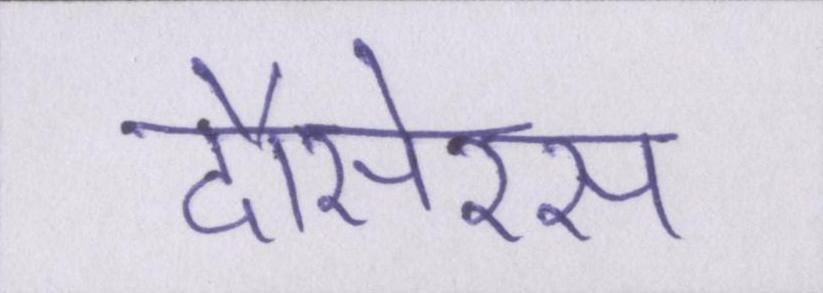 दौसेरस